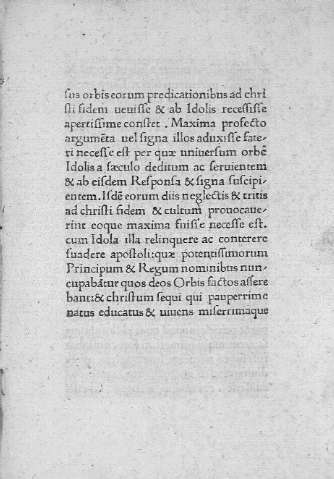 sus orbis eorum predicationibus ad chri
sti fidem ueuisse & ab Idolis recessisse
apertissime constet . Maxima profecto
argumēta uel signa illos aduxisse fate-
ri necesse est per quæ uniuersum orbē
Idolis a sæculo deditum ac seruientem
& ab eisdem Responsa & signa suscipi-
entem. Isdē eorum diis neglectis & tritis
ad christi fidem & cultum prouocaue-
rint eoque maxima fuisse necesse est.
cum Idola illa relinquere ac conterere
suadere apostoli:quæ potentissimorum
Principum & Regum nominibus nun-
cupabātur quos deos Orbis factos assere
bant:& christum sequi qui pauperrime
natus educatus & uiuens miserrimaque